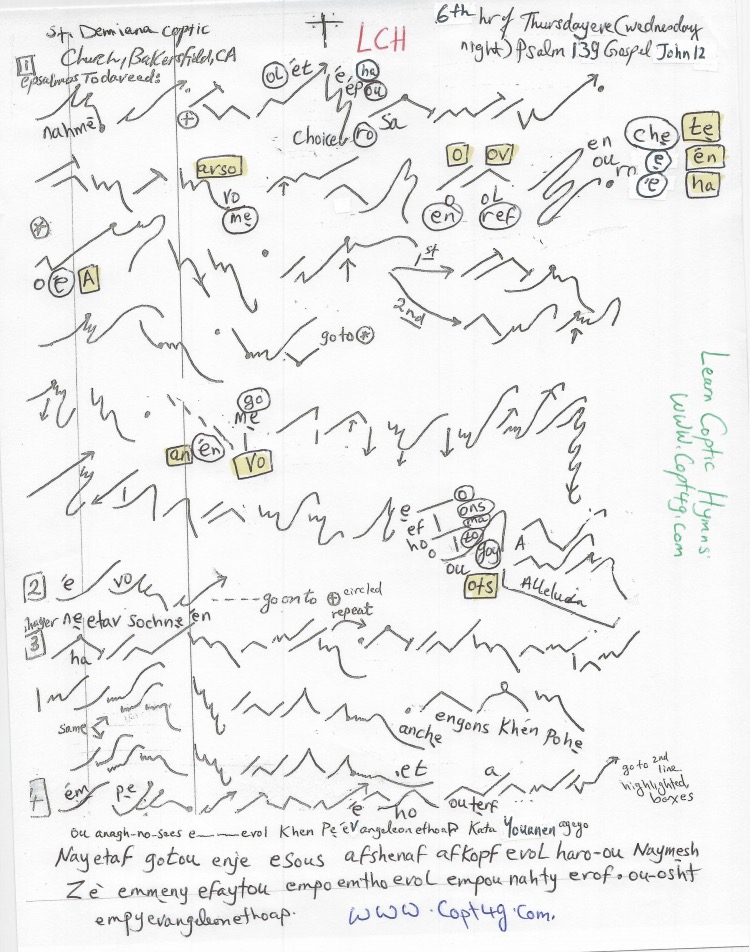 St. Demiana Coptic
Church, Bakersfield, CA
LCH
6th hr of Thursdayeve (wednesday
night) Psalm 139 Gospel John 12
1
epsalmos Todaveed:
nahmē
oL ét é ha
épou
choicel ro sa
en che te
ou rn e én
e ha
arso
vo
me
o ov
o oL
en ref
o e A
1st
2nd
go to *
go
me
an én vo
e o
ef ons
ho ma
o zo
ou goy
ots
A
Alleluia
2 é vo
go on to + circled
repeat
neetav sochne én
3
ha
same
anche engons Khén Pohe
.et a
go to 2nd
line
highlighted
boxes
4 ém pe é ho outerf
ou anagh-no-sees e evol Khen Pe évangeleonethoap Kata Youanen ageyo
Nayetaf gotou enje esous afshenaf afkopf evol haro-ou Naymesh
Zé emmeny efaytou empoemtho evol empou nahty erof. ou-osht
empyevangeleonethoap.
www.Copt4g.Com.
Learn Coptic Hymns:
WWW.Copt4g.com